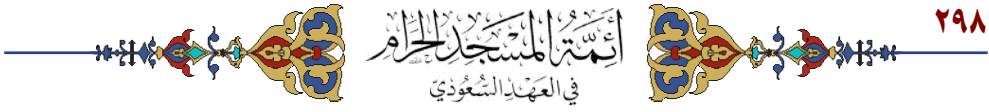 ٢٩٨
أَئِمَّةُ المَسْجِدِ الحَرَامِ
في العَهْدِ السُّعُودِيّ